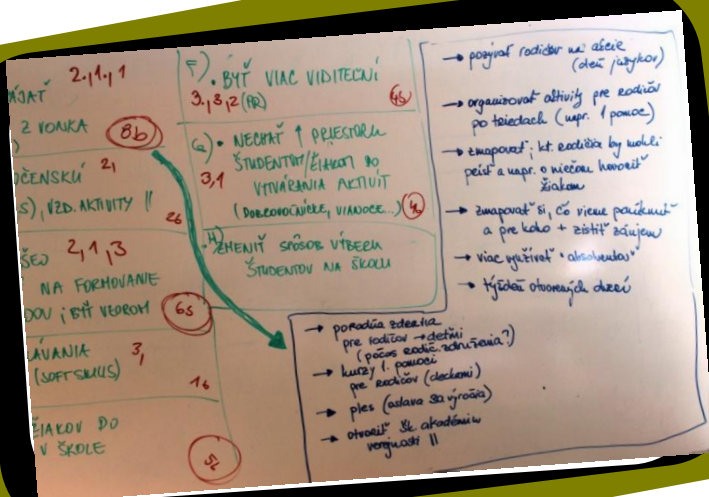 2.,1.,1
AJAŤ
Z VONKA
8b
OČENSKÚ 2,
S), VZD. AKTIVITY ||
2b
2,1,3
NA FORMOVANIE
DOV ; BYŤ VZOROM
6b
ÁVANIA 3,
(SOFTSKILLS)
1b
ŽIAKOV DO
V ŠKOLE
F) . BYŤ VIAC VIDITEĽNÍ
3.,3,2 (PR)
G) • NECHAŤ ↑ PRIESTORU
ŠTUDENTOM/ŽIAKOM DO
3,1 VYTVÁRANIA AKTIVÍT
(DOBROVOĽNÍCKE, VIANOCE...)
H)
ZMENIŤ SPÔSOB VÝBERU
ŠTUDENTOV NA ŠKOLU
→ pozývať rodičov na akcie
(deň jazykov)
→ organizovať aktivity pre rodičov
po triedach (napr. 1 pomoc)
→ zmapovať, kt. rodičia by mohli
prísť a napr. o niečom hovoriť
žiakom
→ zmapovať si, čo vieme ponúknuť
a pre koho + zistiť záujem
→ viac využívať "absolventov"
→ týždeň otvorených dverí
→ poradňa zdravia
pre rodičov → deťmi
(počas rodič. združenia?)
→ kurzy 1. pomoci
pre rodičov (deckami)
→ ples (oslava výročia)
→ otvoriť šk. akadémiu
verejnosti ||